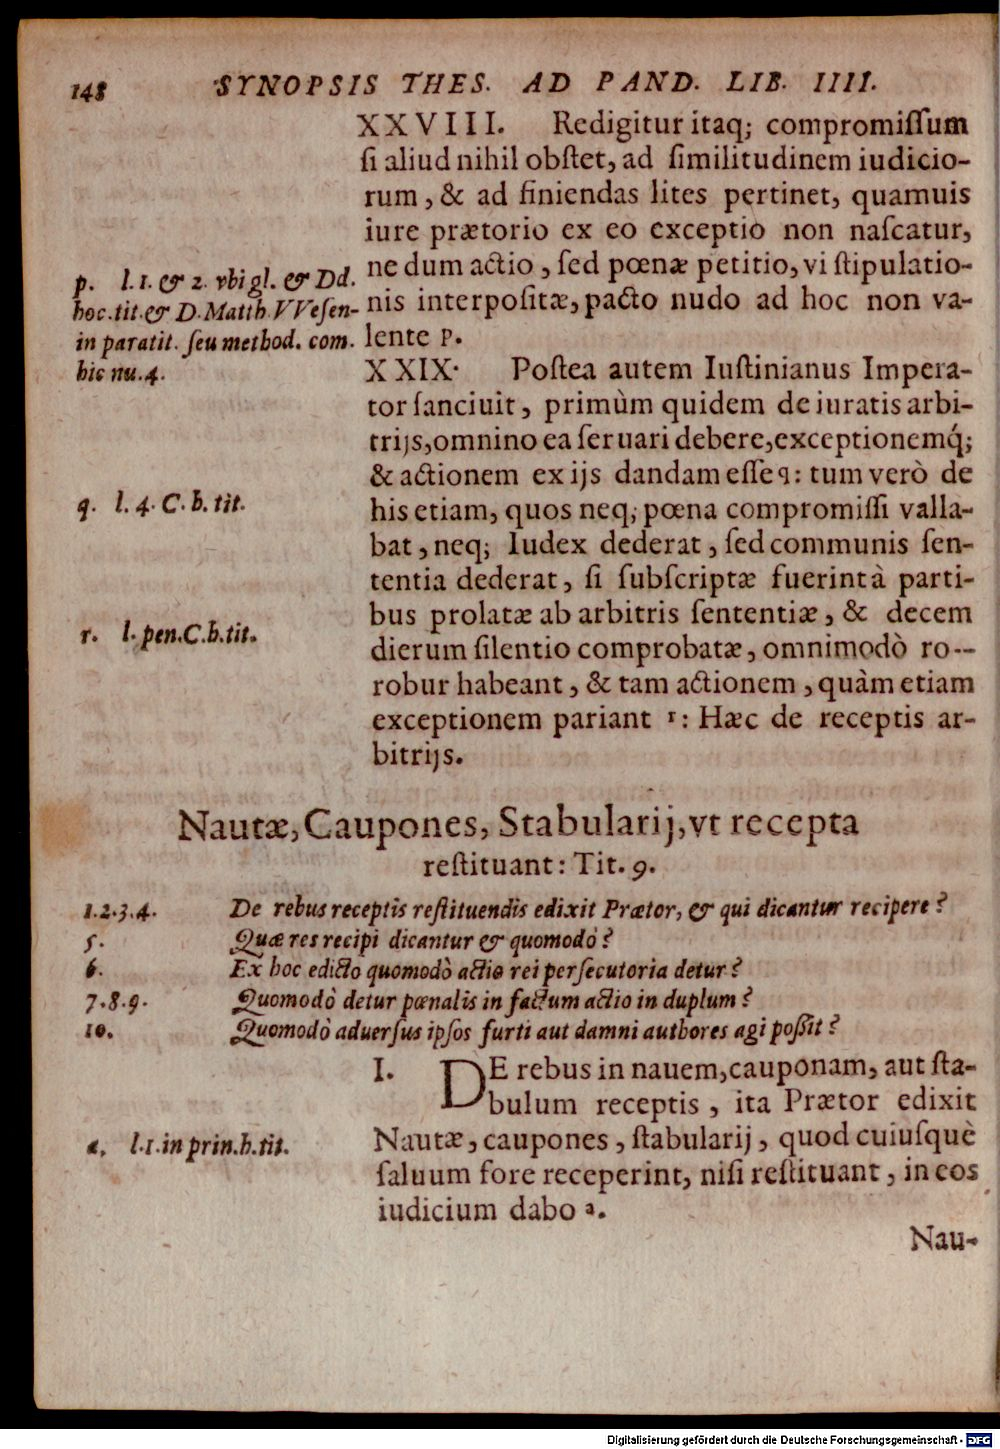 148 SYNOPSIS THES. AD PAND. LIB. IIII.
XXVIII. Redigitur itaq; compromiſſum
ſi aliud nihil obſtet, ad ſimilitudinem iudicio-
rum, & ad finiendas lites pertinet, quamuis
iure prætorio ex eo exceptio non naſcatur,
ne dum actio, ſed pœnæ petitio, vi ſtipulatio-
nis interpoſitæ, pacto nudo ad hoc non va-
lente p.
p. l. 1. & 2. vbi gl. & Dd.
hoc. tit. & D. Matth. VVeſen-
in paratit. ſeu method. com.
hic nu. 4.
XXIX. Poſtea autem Iuſtinianus Impera-
tor ſanciuit, primùm quidem de iuratis arbi-
trijs, omnino ea ſeruari debere, exceptionemq́;
& actionem ex ijs dandam eſſe q: tum verò de
his etiam, quos neq; pœna compromiſſi valla-
bat, neq; Iudex dederat, ſed communis ſen-
tentia dederat, ſi ſubſcriptæ fuerint à parti-
bus prolatæ ab arbitris ſententiæ, & decem
dierum ſilentio comprobatæ, omnimodò ro--
robur habeant, & tam actionem, quàm etiam
exceptionem pariant r: Hæc de receptis ar-
bitrijs.
q. l. 4. C. h. tit.
r. l. pen. C. h. tit.
Nautæ, Caupones, Stabularij, vt recepta
reſtituant: Tit. 9.
1.2.3.4. De rebus receptis reſtituendis edixit Prætor, & qui dicantur recipere?
5. Quæ res recipi dicantur & quomodò?
6. Ex hoc edicto quomodò actio rei perſecutoria detur?
7.8.9. Quomodò detur pœnalis in factum actio in duplum?
10. Quomodò aduerſus ipſos furti aut damni authores agi poſſit?
I. DE rebus in nauem, cauponam, aut ſta-
bulum receptis, ita Prætor edixit
Nautæ, caupones, ſtabularij, quod cuiuſquè
ſaluum fore receperint, niſi reſtituant, in eos
iudicium dabo a.
a. l. 1. in prin. h. tit.
Nau-
Digitalisierung gefördert durch die Deutsche Forschungsgemeinschaft - DFG